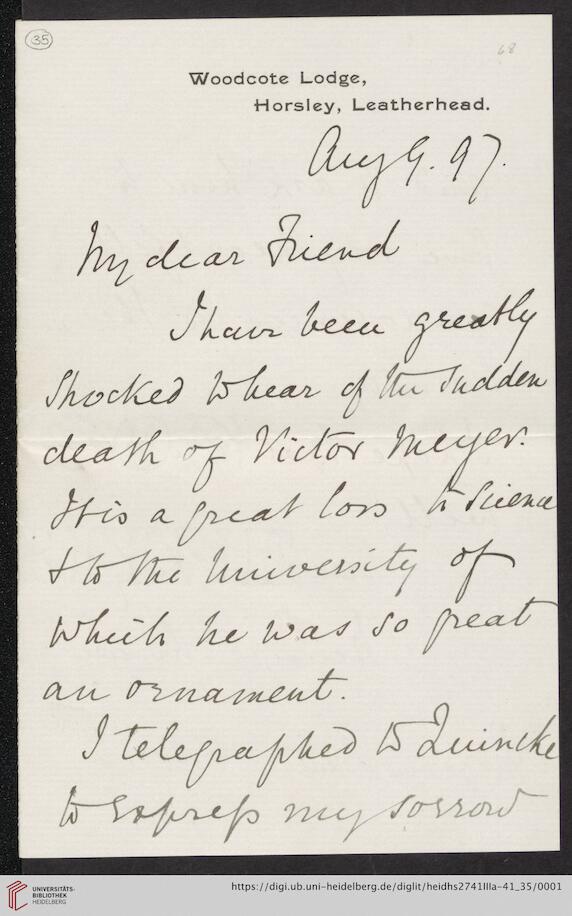 35
68
Woodcote Lodge,
Horsley, Leatherhead.
Aug 9. 97.
My dear Friend
I have been greatly
shocked to hear of the sudden
death of Victor Meyer.
It is a great loss to Science
& to the University of
which he was so great
an ornament.
I telegraphed to Quincke
to express my sorrow
UNIVERSITÄTS-
BIBLIOTHEK
HEIDELBERG
https://digi.ub.uni-heidelberg.de/diglit/heidhs2741IIIa-41_35/0001